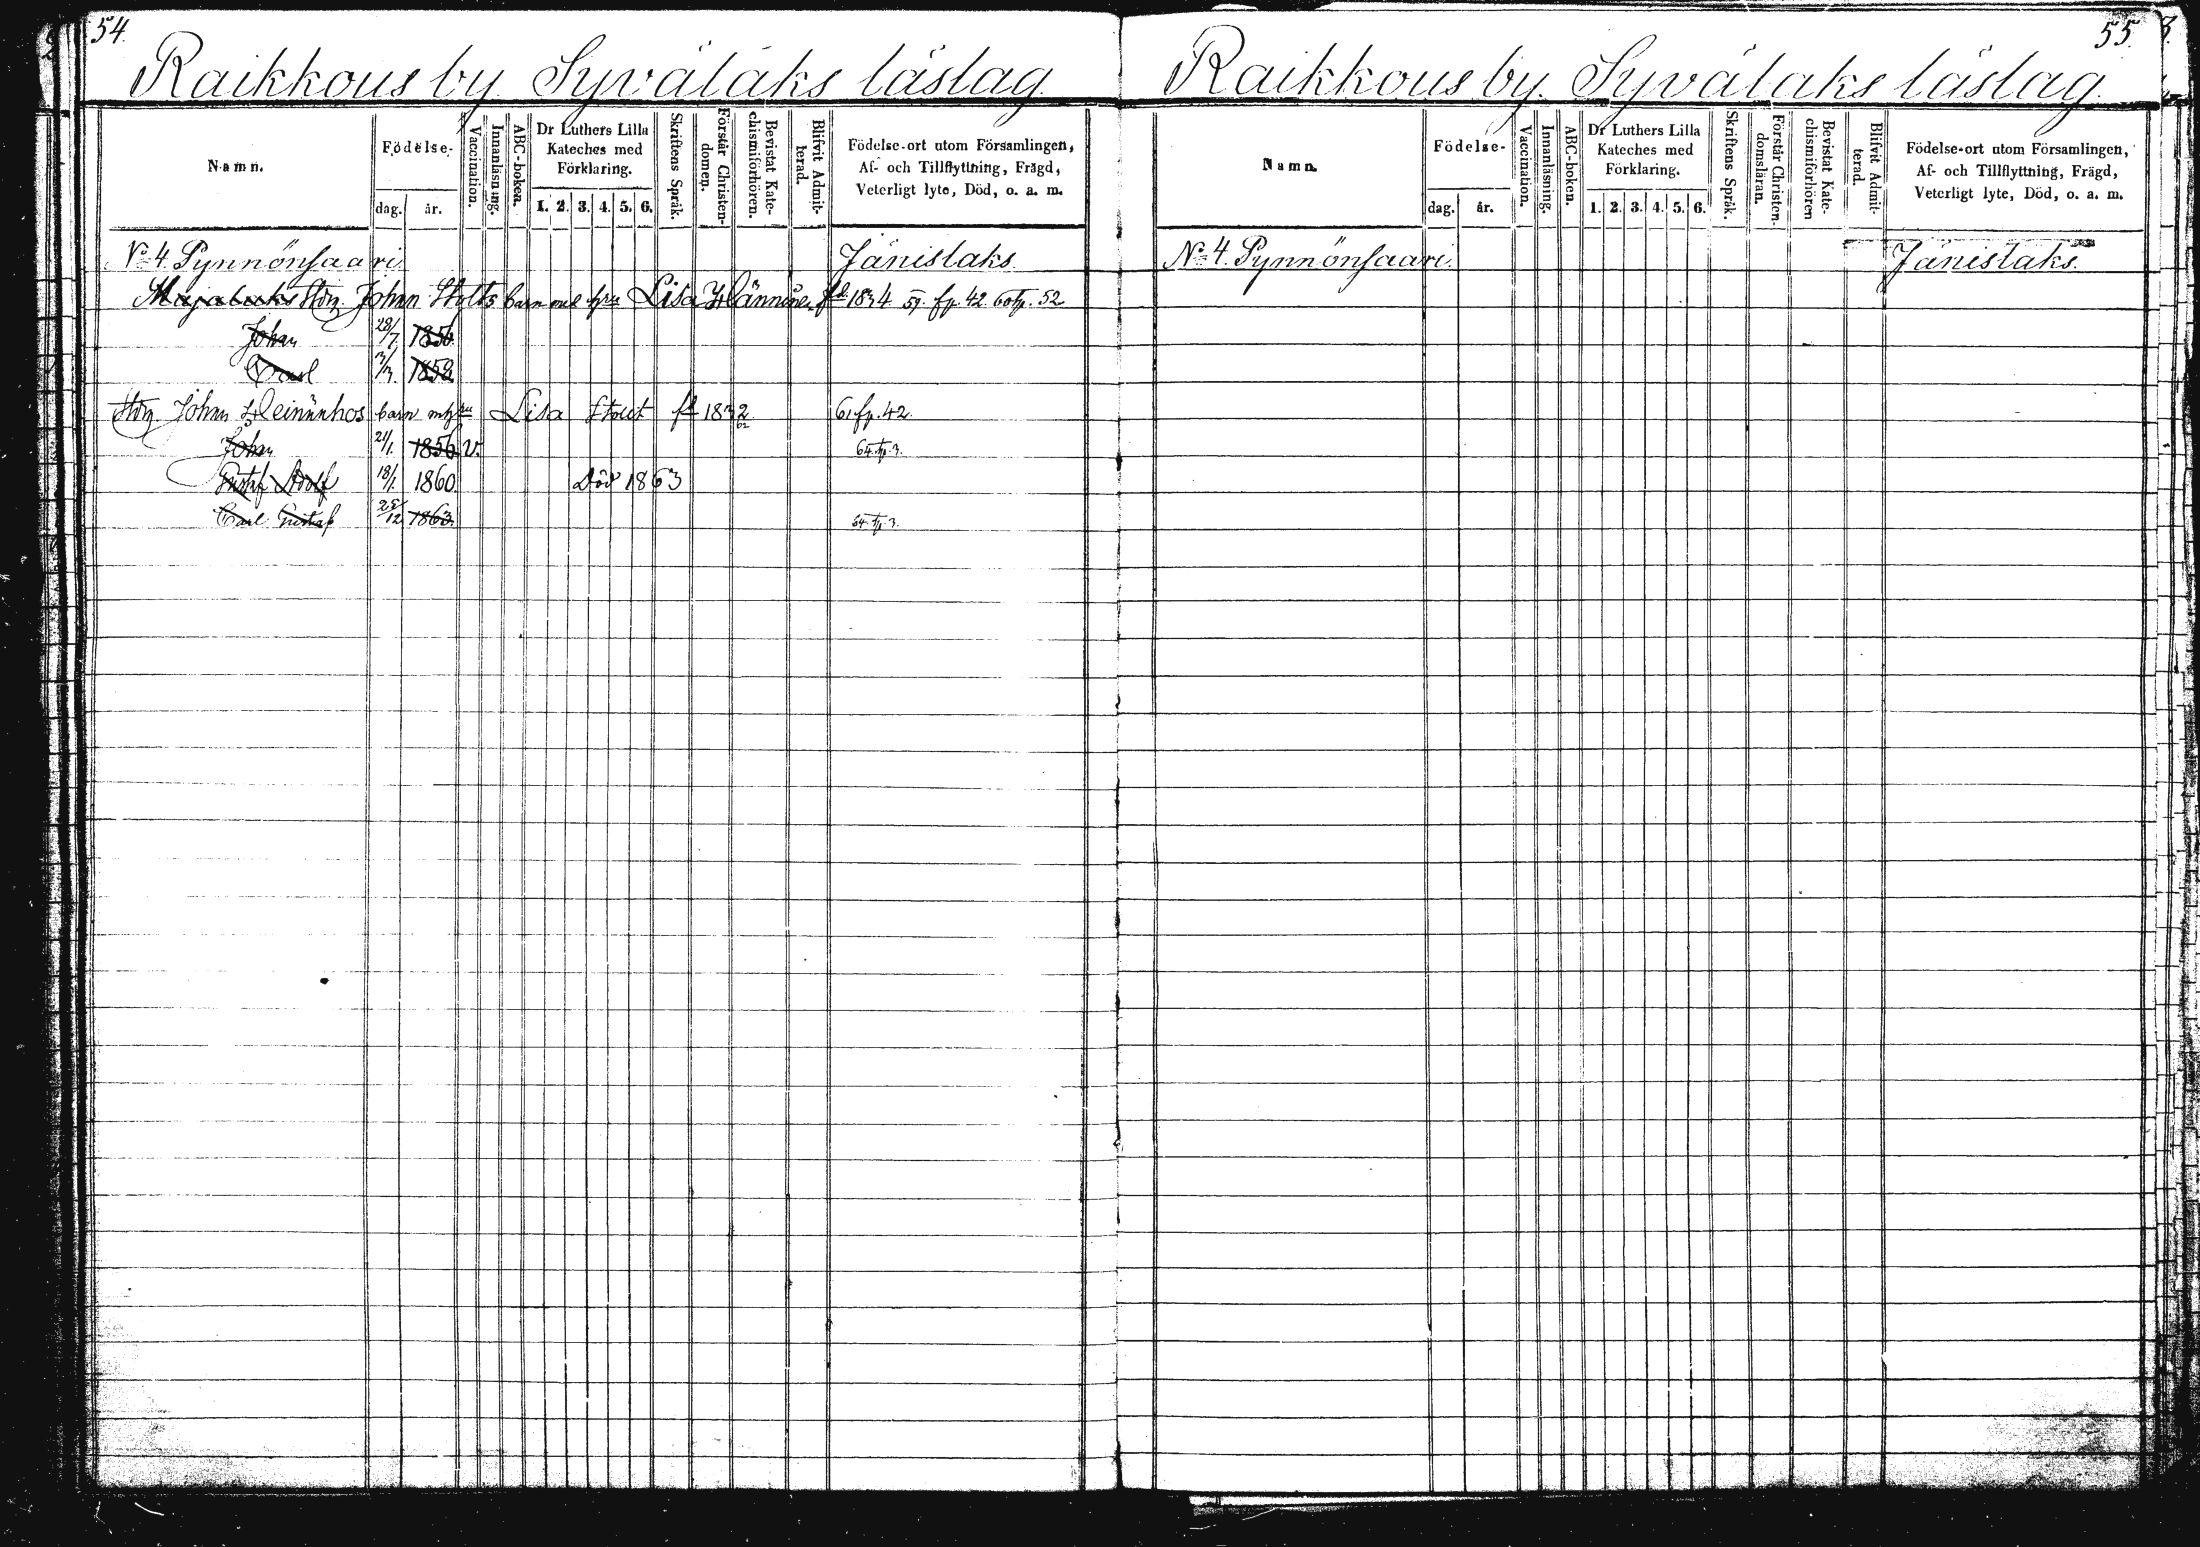 54.
Raikkous by. Syvälaks läslag.
Namn.
Födelse-
dag. år.
Vaccination.
Innanläsning.
ABC-boken.
Dr Luthers Lilla
Kateches med
Förklaring.
1. 2. 3. 4. 5. 6.
Skriftens Språk.
Förstår Christen-
domen.
Bevistat Kate-
chismiförhören.
Blifvit Admit-
terad.
Födelse-ort utom Församlingen,
Af- och Tillflyttning, Frägd,
Veterligt lyte, Död, o. a. m.
No 4. Pynnönsaari. Jänislaks.
John Stolts barn med Lisa Hänninen fd 1834 59. fp. 42. 60 52
Johan 28/7. 1856.
Carl 1858.
John Heininhos barn Lisa Stolt fd 1832 61 fp. 42.
John 21/1. 1856 v. 64. fp. 3.
Gustaf Adolf 18/1. 1860. Död 1863
Carl Gustaf 1863 64. fp. 3.
55.
Raikkous by. Syvälaks läslag.
Namn.
Födelse-
dag. år.
Vaccination.
Innanläsning.
ABC-boken.
Dr Luthers Lilla
Kateches med
Förklaring.
1. 2. 3. 4. 5. 6.
Skriftens Språk.
Förstår Christen-
domsläran.
Bevistat Kate-
chismiförhören
Blifvit Admit-
terad.
Födelse-ort utom Församlingen,
Af- och Tillflyttning, Frägd,
Veterligt lyte, Död, o. a. m.
No 4. Pynnönsaari. Jänislaks.